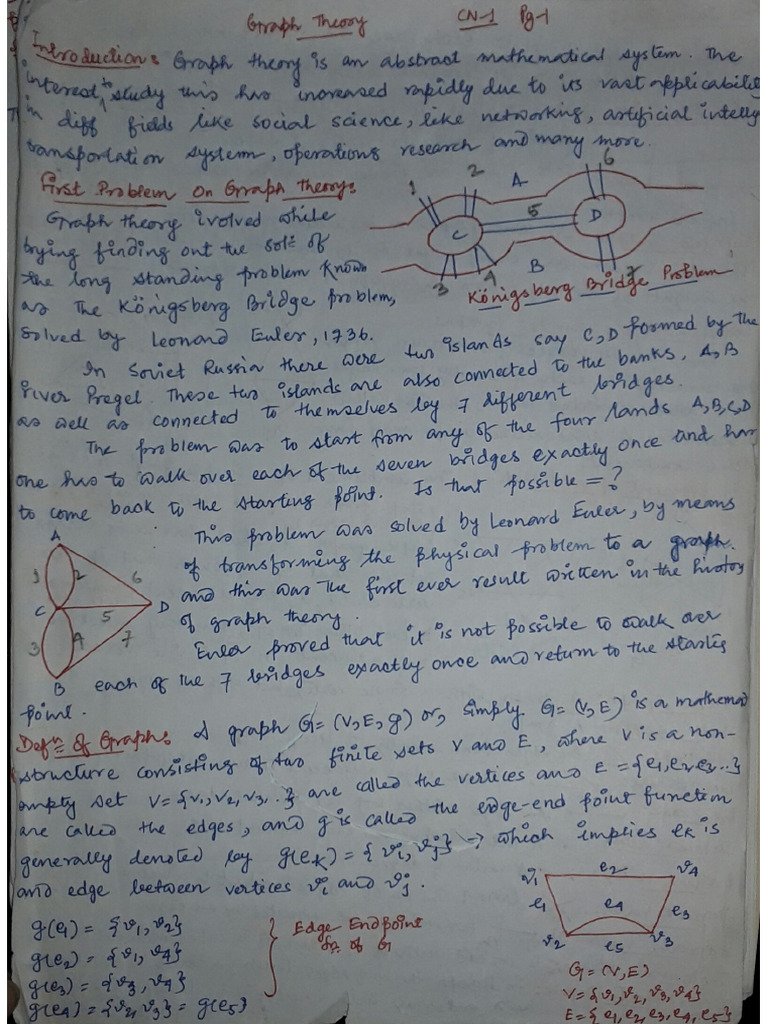 Graph Theory CN-1 Pg-1
Introduction: Graph theory is an abstract mathematical system. The
interest to study this has increased rapidly due to its vast applicability
in diff fields like social science, like networking, artificial intelly
transportation system, operations research and many more.
First Problem On Graph theory:
Graph theory ivolved while
trying finding out the solⁿ of
the long standing problem known
as The Königsberg Bridge problem,
solved by Leonard Euler, 1736.
1 2 A 6
C 5 D
3 4 B 7
Königsberg Bridge Problem
In Soviet Russia there were two islands say C, D formed by The
river Pregel. These two islands are also connected to the banks, A, B
as well as connected to themselves by 7 different bridges.
The problem was to start from any of the four lands A, B, C, D
one has to walk over each of the seven bridges exactly once and has
to come back to the starting point. Is that possible = ?
A
1 2 6
C 5 D
3 4 7
B
This problem was solved by Leonard Euler, by means
of transforming the physical problem to a graph.
and this was the first ever result written in the history
of graph theory.
Euler proved that it is not possible to walk over
each of the 7 bridges exactly once and return to the starting
point.
Defⁿ Of Graph: A graph G = (V, E, g) or, simply G = (V, E) is a mathema
structure consisting of two finite sets V and E, where V is a non-
empty set V = {v1, v2, v3, ..} are called the vertices and E = {e1, e2, e3 ..}
are called the edges, and g is called the edge-end point function
generally denoted by g(eK) = {vi, vj} → which implies eK is
and edge between vertices vi and vj.
g(e1) = {v1, v2}
g(e2) = {v1, v4}
g(e3) = {v3, v4}
g(e4) = {v2, v3} = g(e5)
Edge Endpoint
fn of G
v1 e2 v4
e1 e4 e3
v2 e5 v3
G = (V, E)
V = {v1, v2, v3, v4}
E = {e1, e2, e3, e4, e5}